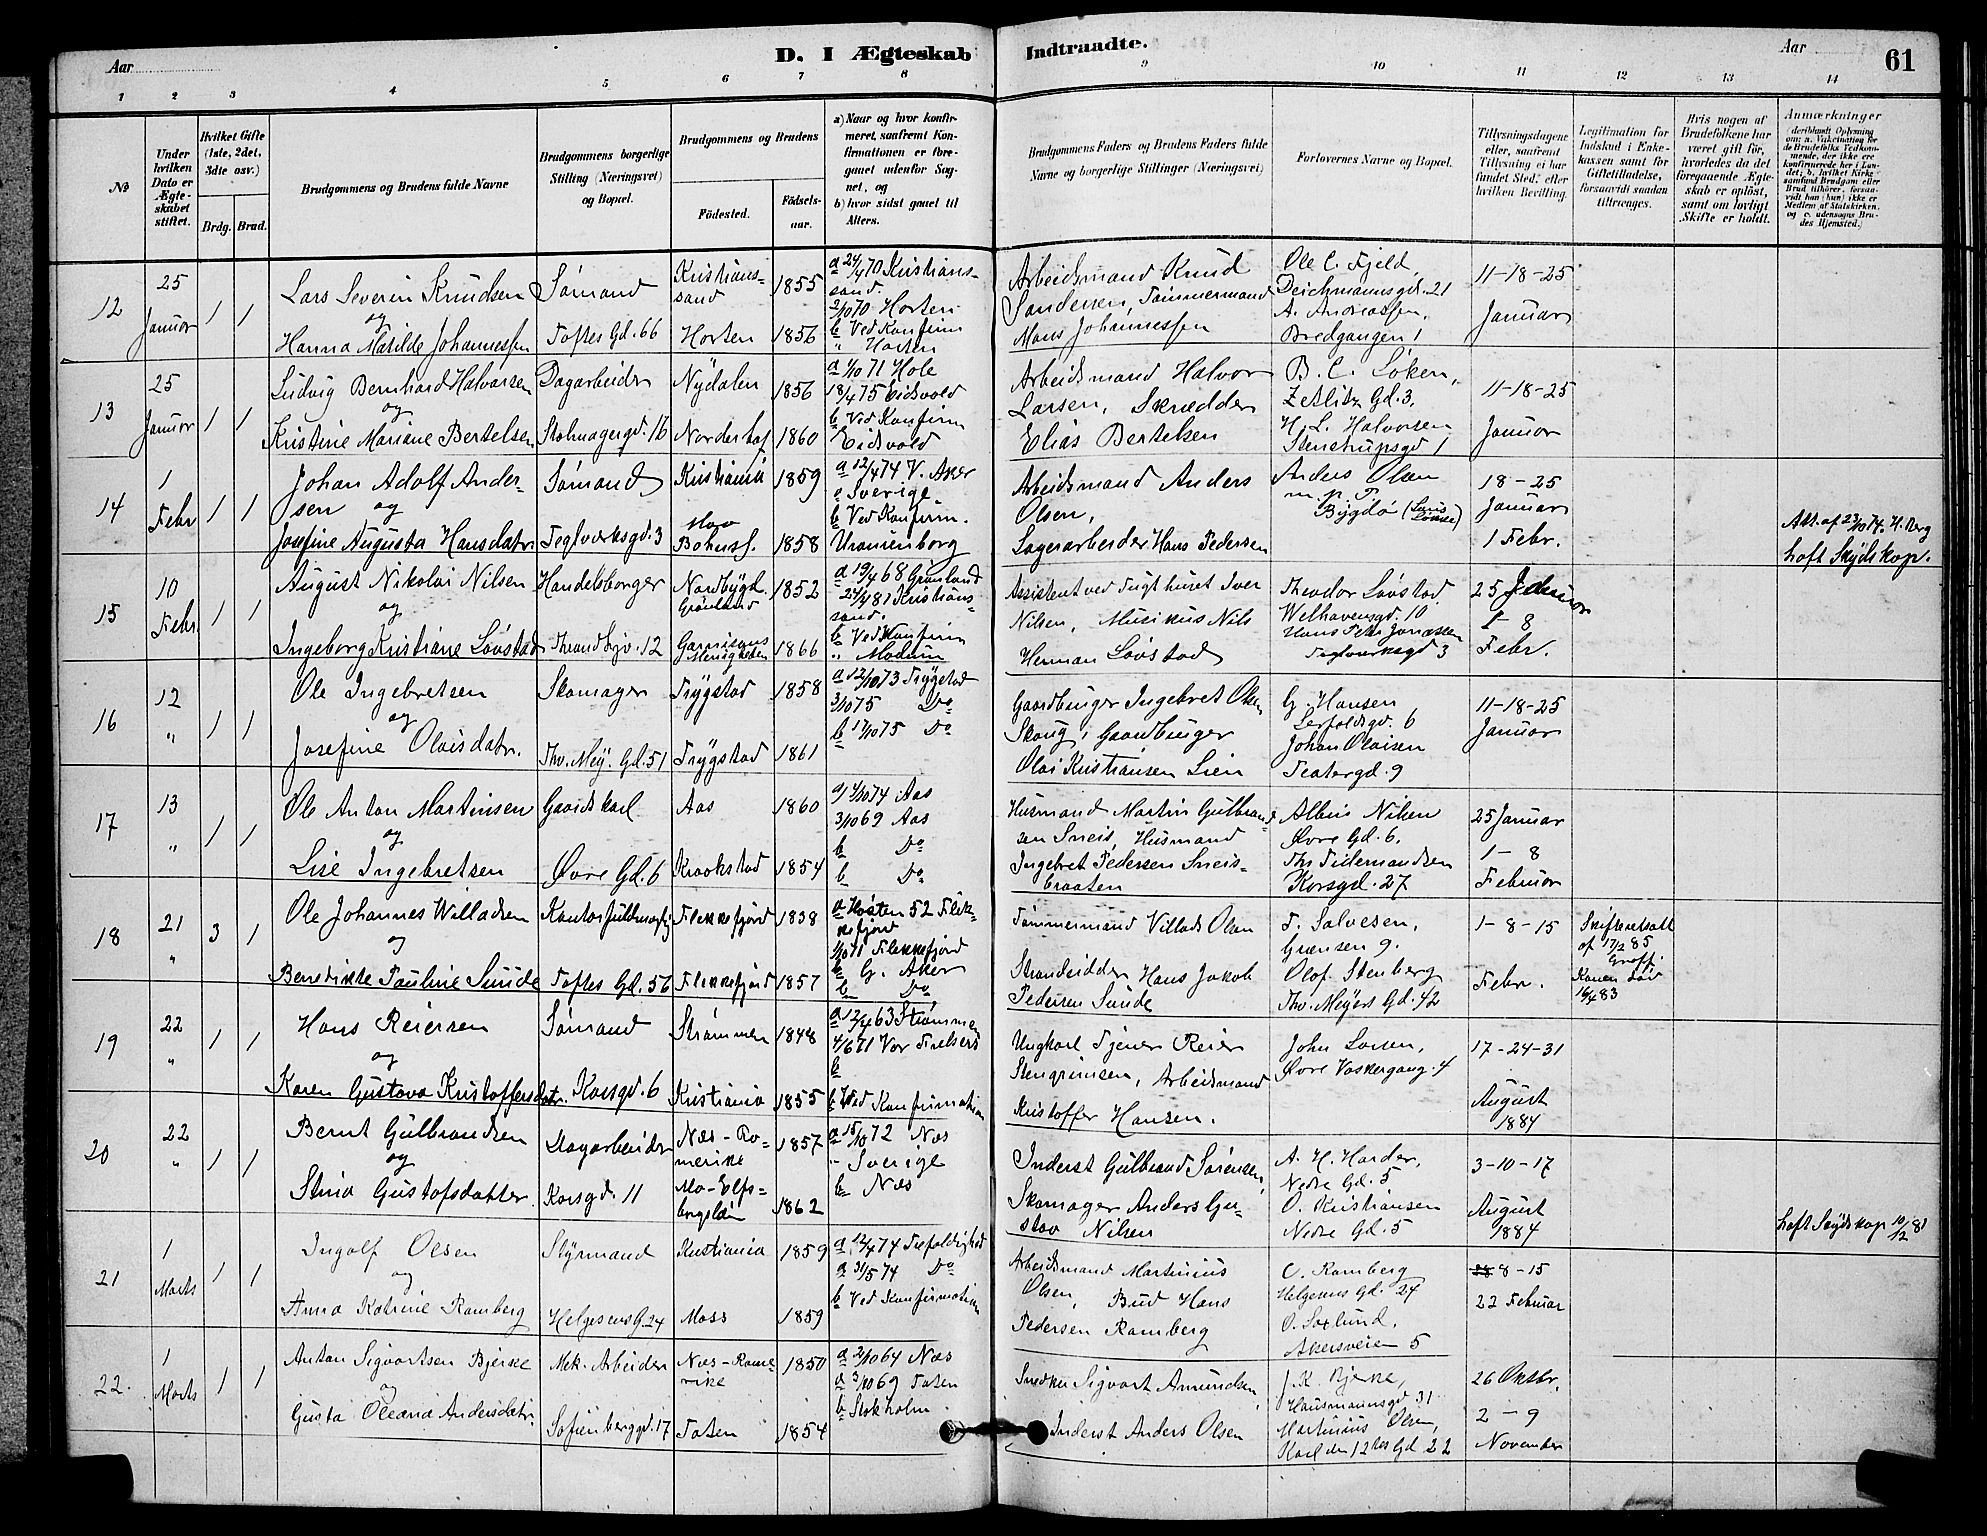 Aar
D. I Ægteskab
Indtraadte.
Aar
61
1 2 3 4 5 6 7 8 9 10 11 12 13 14
No
Under hvilken Dato er Ægteskabet stiftet.
Hvilket Gifte (1ste, 2det, 3die osv.)
Brdg. Brud.
Brudgommens og Brudens fulde Navne
Brudgommens borgerlige Stilling (Næringsvei) og Bopæl.
Brudgommens og Brudens
Fødested.
Fødselsaar.
a) Naar og hvor konfirmeret, saafremt Konfirmationen er foregaaet udenfor Sognet, og
b) hvor sidst gaaet til Alters.
Brudgommens Faders og Brudens Faders fulde Navne og borgerlige Stillinger (Næringsvei)
Forlovernes Navne og Bopæl.
Tillysningsdagene eller, saafremt Tillysning ei har fundet Sted, efter hvilken Bevilling.
Legitimation for Indskud i Enkekassen samt for Giftetilladelse, forsaavidt saadan tiltrænges.
Hvis nogen af Brudefolkene har været gift før, hvorledes da det foregaaende Ægteskab er opløst, samt om lovligt Skifte er holdt.
Anmærkninger
(deriblandt Oplysning om: a. Vakcination for de Brudefolks Vedkommende, der ikke ere konfirmerede her i Landet; b. hvilket Kirkesamfund Brudgom eller Brud tilhører, forsaavidt han (hun) ikke er Medlem af Statskirken, og c. udensogns Brudes Hjemsted.)
12
25 Januar
1 1
Lars Severin Knudsen
og
Hanna Matilde Johannessen
Sømand
Toftes Gd. 66
Kristianssand
Horten
1855
1856
a 24/4 70 Kristianssand
2/10 70 Horten
b Ved Konfirm
" Horten
Arbeidsmand Knud
Sandersen, Tømmermand
Mons Johannessen
Ole C. Fjeld,
Deichmannsgd. 21
A. Andreassen,
Bredgangen 1
11-18-25
Januar
13
25 Januar
1 1
Ludvig Bernhard Halvorsen
og
Kristine Mariene Bertelsen
Dagarbeider
Stolmagergd. 16
Nydalen
Norderhof
1856
1860
a 1/10 71 Hole
18/4 75 Eidsvold
b Ved Konfirm
Eidsvold
Arbeidsmand Halvor
Larsen, Skrædder
Elias Bertelsen
B. C. Løken,
Zetlitz Gd. 3,
H. L. Halvorsen
Stenstrupsgd 1
11-18-25
Januar
14
1 Febr
1 1
Johan Adolf Andersen
og
Josefine Augusta Hansdatr.
Sømand
Teglverksgd. 3
Kristiania
Bohusl.
1859
1858
a 12/4 74 V. Aker
a Sverige
b Ved Konfirm.
Uranienborg
Arbeidsmand Anders
Olsen,
Lagerarbeider Hans Pedersen
Anders Olsen
Bygdø
18-25
Januar
1 Febr.
Att. af 23/10 74. H. Berg
haft Skydskop.
15
10 Febr.
1 1
August Nikolai Nilsen
og
Ingeborg Kristiane Løvstad
Handelsborger
Thrandhjv. 12
Nordbygd.
Grønland
Garnisons
Menigheden
1852
1866
a 19/4 68 Grønland
24/4 81 Kristianssand.
b Ved Konfirm
" Modum
Assistent ved Tugthuset Iver
Nilsen, Musikus Nils
Herman Løvstad
Theodor Løvstad
Welhavensgd. 10
Hans Petr Jonassen
Teglverksgd 3
25 Januar
1-8
Febr.
16
12 "
1 1
Ole Ingebretsen
og
Josefine Olaisdatr.
Skomager
Thv. Mey. Gd. 51
Trygstad
Trygstad
1858
1861
a 12/10 73 Trygstad
3/10 75 Do
b 17/10 75 Do
Gaardbruger Ingebret Olsen
Skoug, Gaardbruger
Olai Kristiansen Lien
G. Hansen
Johan Olaisen
Teatergd. 9
11-18-25
Januar
17
13 "
1 1
Ole Anton Martinsen
og
Lise Ingebretsen
Gaardskarl
Øvre Gd. 6
Aas
Kraakstad
1860
1854
a) 4/10 74 Aas
3/10 69 Aas
b Do
b Do
Husmand Martin Gulbrandsen
Sneis, Husmand
Ingebret Pedersen Sneisbraaten
Albin Nilsen
Øvre Gd. 6.
Ths Tidemandsen
Korsgd. 27
25 Januar
1-8
Februar
18
21 "
3 1
Ole Johannes Willadsen
og
Benedikte Pauline Sunde
Kontorfuldmægtig
Toftes Gd. 56
Flekkefjord
Flekkefjord
1838
1857
a Høsten 52 Flekkefjord
1/10 71 Flekkefjord
b G. Aker
b Do
Tømmermand Villads Olsen
Strandsidder Hans Jakob
Pedersen Sunde
T. Salvesen,
Grænsen 9.
Olof Stenberg
Thv. Meyers Gd. 42
1-8-15
Febr.
Skifteretsatt
af 17/2 85
Konen død
16/4 83
19
22 "
1 1
Hans Reiersen
og
Karen Gustava Kristoffersdatr.
Sømand
Korsgd. 6
Strømmen
Kristiania
1848
1855
a 12/4 63 Strømmen
4/6 71 Vor Frelsers
b
b Ved Konfirmation
Ungkarl Tjener Reier
Stengrimsen, Arbeidsmand
Kristoffer Hansen.
John Larsen,
Øvre Vaskergang. 4
17-24-31
August
1884
20
22 "
1 1
Bernt Gulbrandsen
og
Stina Gustofsdatter
Dagarbeider
Korsgd. 11
Næs-Romerike
Mo-Elfsborgslän
1857
1862
a 15/10 72 Næs
- Sverige
b Næs
Inderst Gulbrand Sørensen,
Skomager Anders Gustav
Nilsen
A. H. Harder,
Nedre Gd. 5
O. Kristiansen
Nedre Gd. 5
3-10-17
August
1884
haft Skydskop 10/12 81
21
1 Marts
1 1
Ingolf Olsen
og
Anna Katrine Ramberg
Styrmand
Helgesens G. 24
Kristiania
Moss
1859
1859
a 12/4 74 Trefoldighed
a 31/5 74 Do
b Ved Konfirmation
Arbeidsmand Martinius
Olsen, Bud Hans
Pedersen Ramberg
O. Ramberg
Helgesens Gd. 24
O. Soglund,
Akersveien 5
8-15
22 Februar
22.
1 Marts
1 1
Anton Sigvartsen Bjerke
og
Gusta Oleana Andersdatr.
Mek. Arbeider
Sofienberggd. 17
Næs-Romerike
Toten
1850
1854
a 2/10 64 Næs
a 3/10 69 Toten
b Stokholm
Snedker Sigvart Amundsen,
Inderst Anders Olsen
J. K. Bjerke,
Hausmannsgd 31
Martinius Olsen,
Karl den 12tes Gd 22
26 Oktbr.
2-9
November